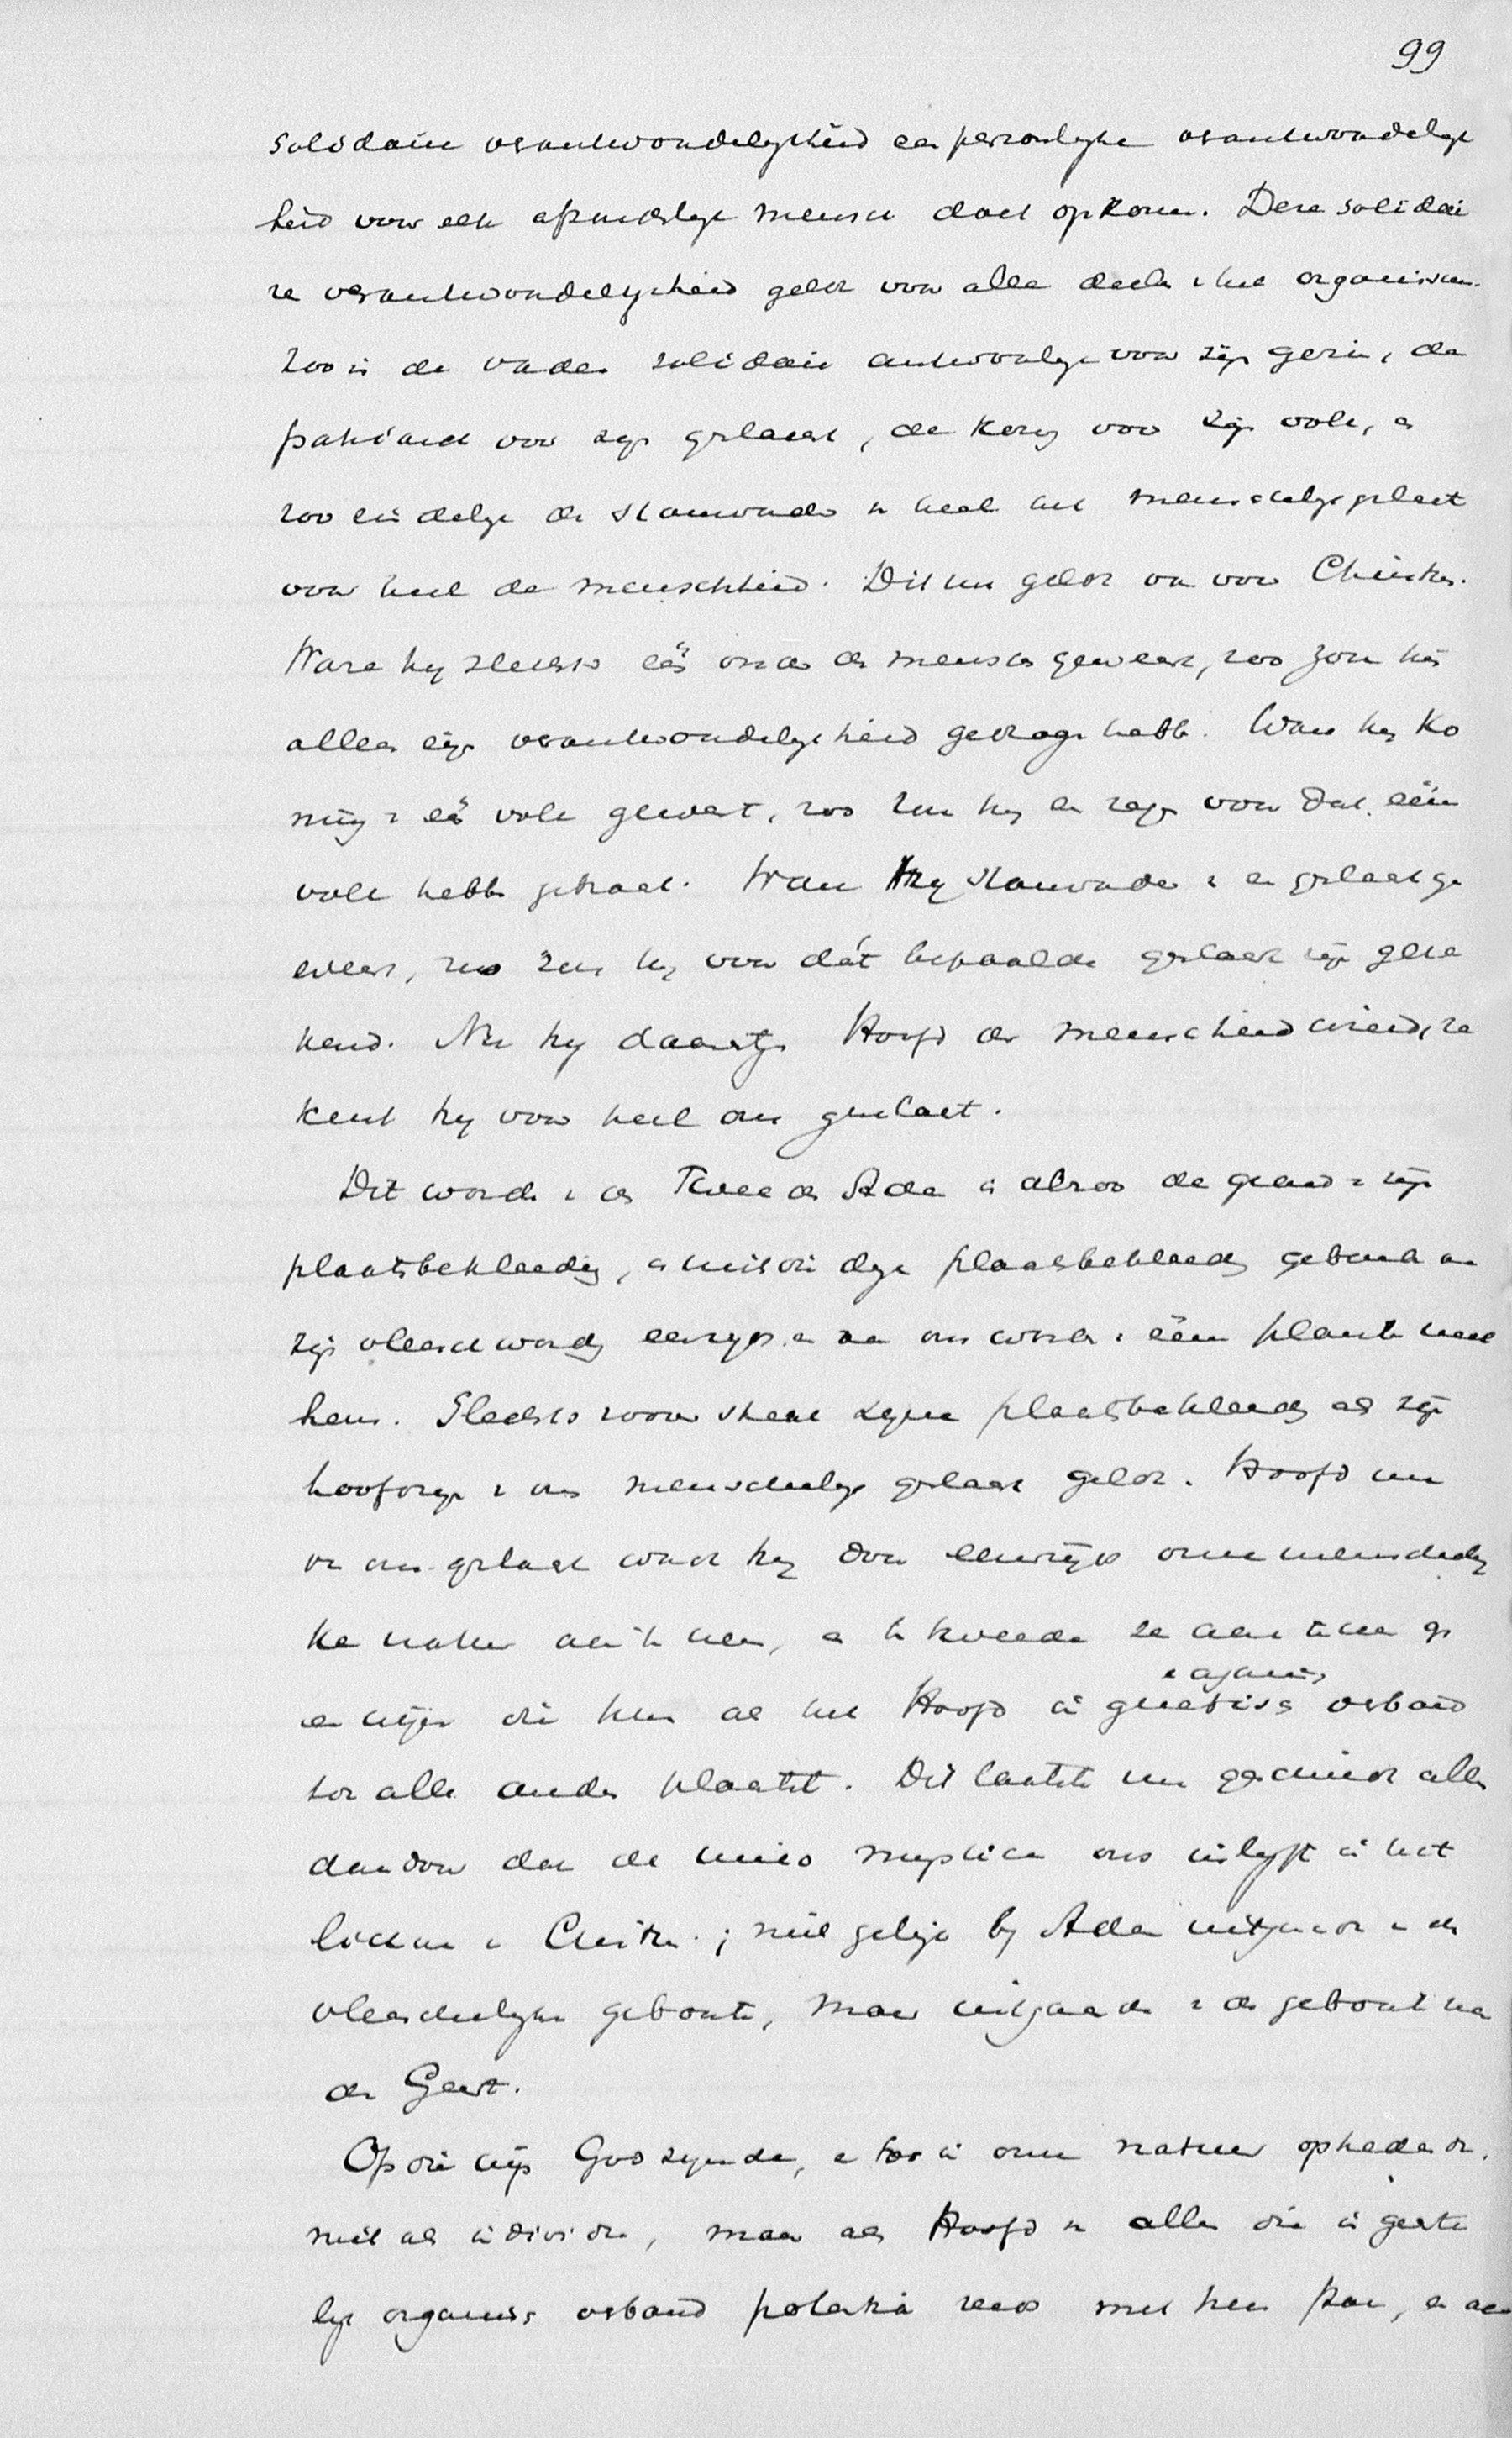 99
solidaire verantwoordelijkheid een persoonlijke verantwoordelijk
heid voor elk afzonderlijk mensch doet opkomen. Deze solidai
re verantwoordelijkheid geldt voor alle deelen v het organisme.
Zoo is de vader solidair antwoordelijk voor zijn gezin, de
patriarch voor zijn geslacht, de koning voor zijn volk, en
zoo eindelijk de stamvader v heel het menschelijk geslacht
voor heel de menschheid. Dit nu geldt ook voor Christus.
Ware hij slechts één onder de menschen geweest, zoo zou hij
alleen eigen verantwoordelijkheid gedragen hebben. Ware hij Ko
ning v één volk geweest, zoo zou hij en zege voor dat één
volk hebben gehaald. Ware Hij stamvader v een geslacht ge
weest, zoo zou hij voor dát bepaalde geslacht zijn gere
kend. Nu hij daarentegen Hoofd der menschheid wierd, re
kent hij voor heel ons geslacht.
Dit worden v de Tweede Adam is alzoo de grond v zijn
plaatsbekleeding, en uit dien dage plaatsbekleeding gebonden aan
zijn vleeschwording eenerzijds en aan ons worden v ééne plante met
hem. Slechts zoover strekt zijne plaatsbekleeding als zijn
hoofd zijn v ons menschelijk geslacht geldt. Hoofd nu
van ons geslacht wordt hij door eenerzijds onze menschelij
ke natuur aan te nemen, en ten tweede ze aan te nemen op
een wijze die hem als het Hoofd in genetisch organisch verband
tot alle anderen plaatst. Dit laatste nu geschiedt alleen
daardoor dat de unio mystica ons inlijft in het
lichaam v Christus; niet gelijk bij Adam uitgaande v de
vleeschelijke geboorte, maar uitgaande v de geboorte van
den Geest.
Op die wijs God zijnde, en toch in onze natuur optredende,
niet als individu, maar als Hoofd v allen die in geeste
lijk organisch verband potentia reeds met hem staan, en aan